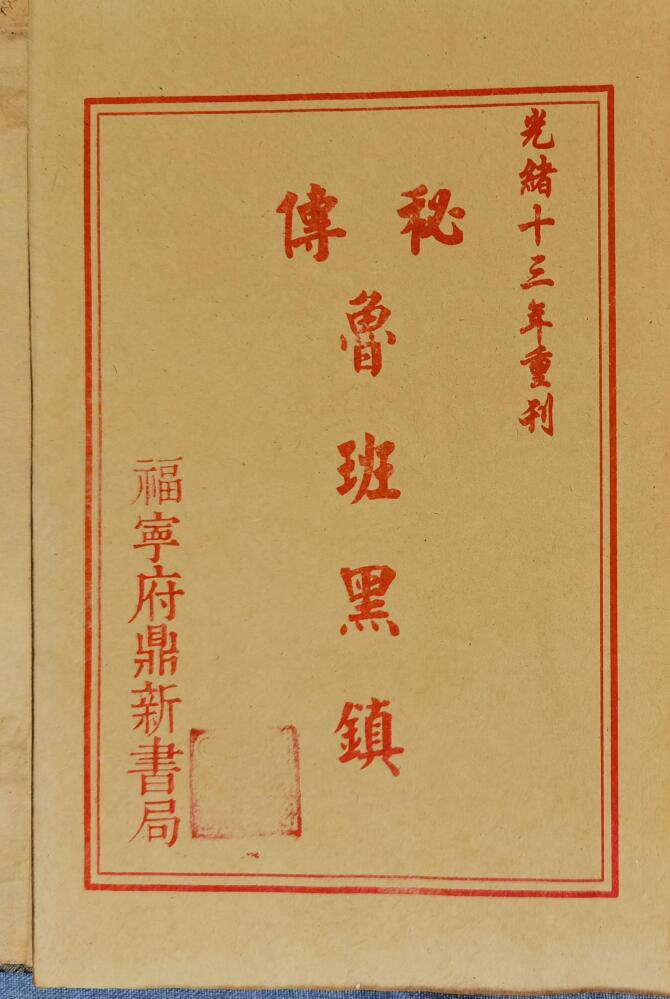 光緒十三年重刊
秘傳
魯班黑鎮
福寧府鼎新書局